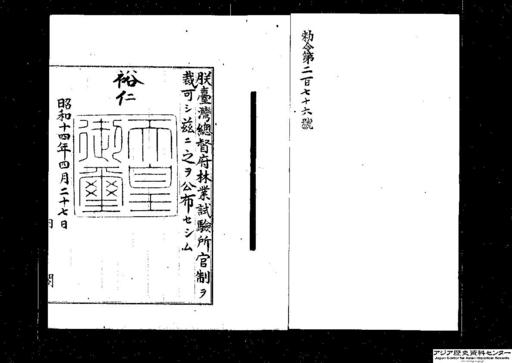 勅令第二百七十六號
朕臺灣總督府林業試驗所官制ヲ
裁可シ茲ニ之ヲ公布セシム
裕仁
天皇
御璽
昭和十四年四月二十七日
内閣
アジア歴史資料センター
Japan Center for Asian Historical Records